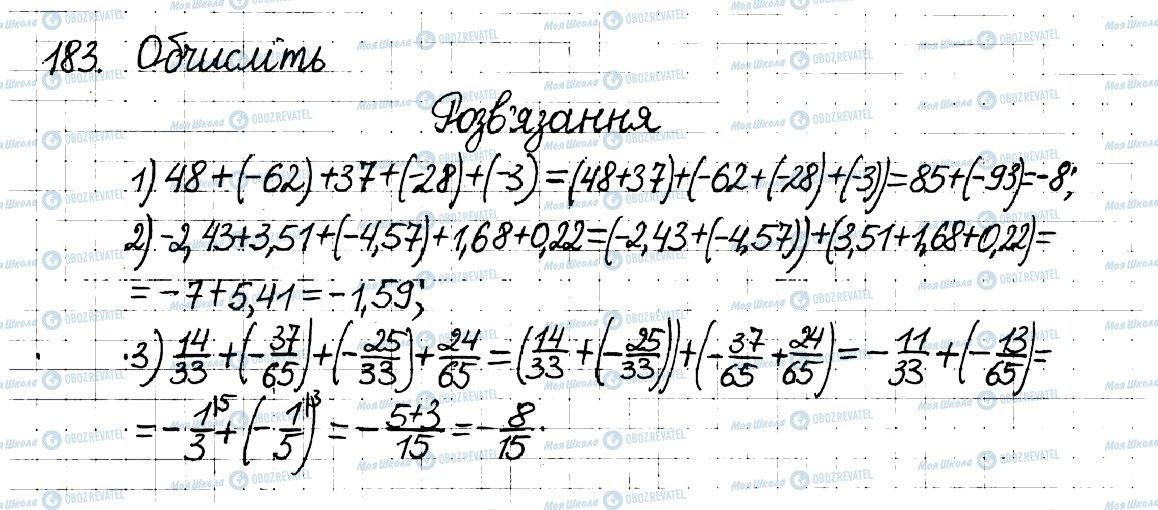 183. Обчисліть
Розв'язання
1) 48+(-62)+37+(-28)+(-3)=(48+37)+(-62+(-28)+(-3))=85+(-93)=-8;
2) -2,43+3,51+(-4,57)+1,68+0,22=(-2,43+(-4,57))+(3,51+1,68+0,22)=
= -7+5,41=-1,59;
3) 14/33+(-37/65)+(-25/33)+24/65=(14/33+(-25/33))+(-37/65+24/65)=-11/33+(-13/65)=
= -1/3|5+(-1/5|3)=-5+3/15=-8/15.